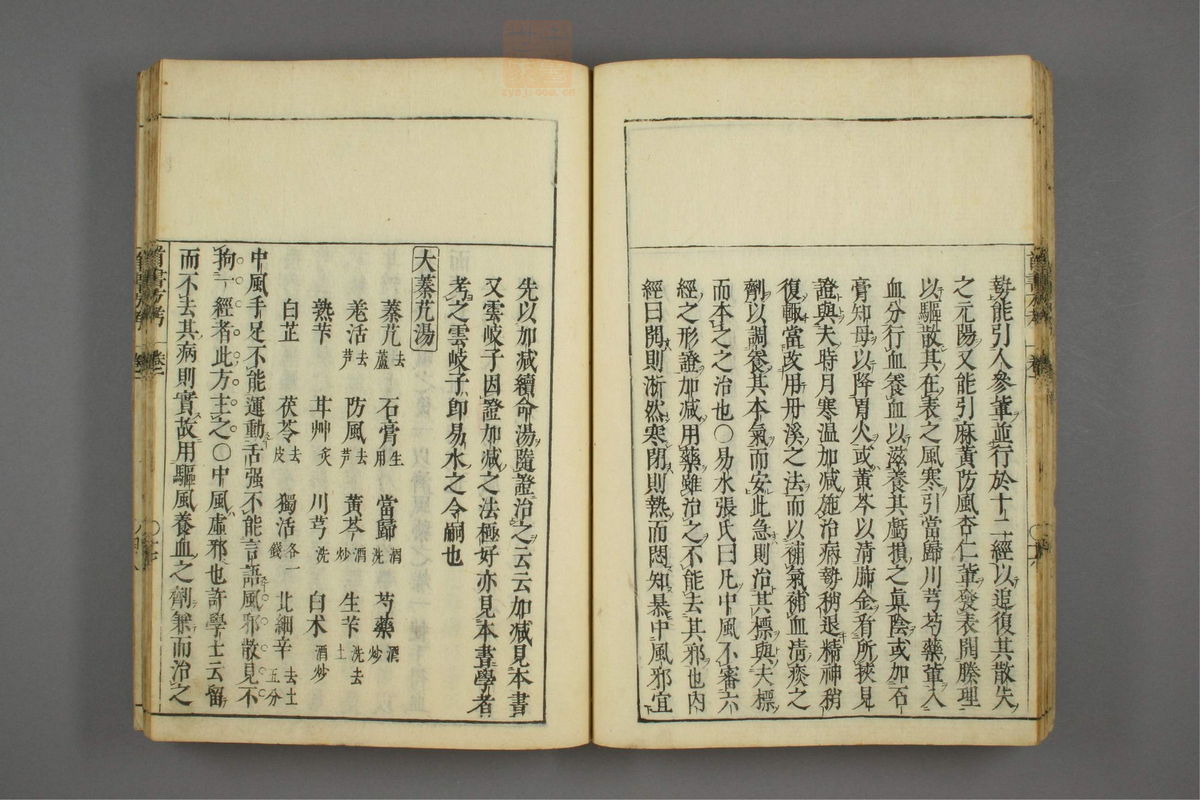 勢能引人參輩並行於十二經以追復其散失
之元陽又能引麻黃防風杏仁輩發表開腠理
以驅散其在表之風寒引當歸川芎芍藥輩入
血分行血養血以滋養其虧損之眞陰或加石
膏知母以降胃火或黃芩以清肺金看所挾見
證與夫時月寒温加减施治病勢稍退精神稍
復輙當改用丹溪之法而以補氣補血清痰之
劑以調養其本氣而安此急則治其標與夫標
而本之之治也〇易水張氏曰凡中風不審六
經之形證加减用藥雖治之不能去其邪也内
經曰開則淅然寒閉則熱而悶知暴中風邪宜
先以加减續命湯隨證治之云云加减見本書
又雲岐子因證加减之法極好亦見本書學者
考之雲岐子卽易水之令嗣也
大秦艽湯
秦艽去蘆 石膏生用 當歸酒洗 芍藥酒炒
羌活去芦 防風去芦 黃芩酒炒 生芐洗去土
熟芐 甘艸炙 川芎洗 白术酒炒
白芷 茯苓去皮 獨活各一錢 北細辛去土五分
中風手足不能運動舌强不能言語風邪散見不
拘一經者此方主之〇中風虛邪也許學士云留
而不去其病則實故用驅風養血之劑兼而治之